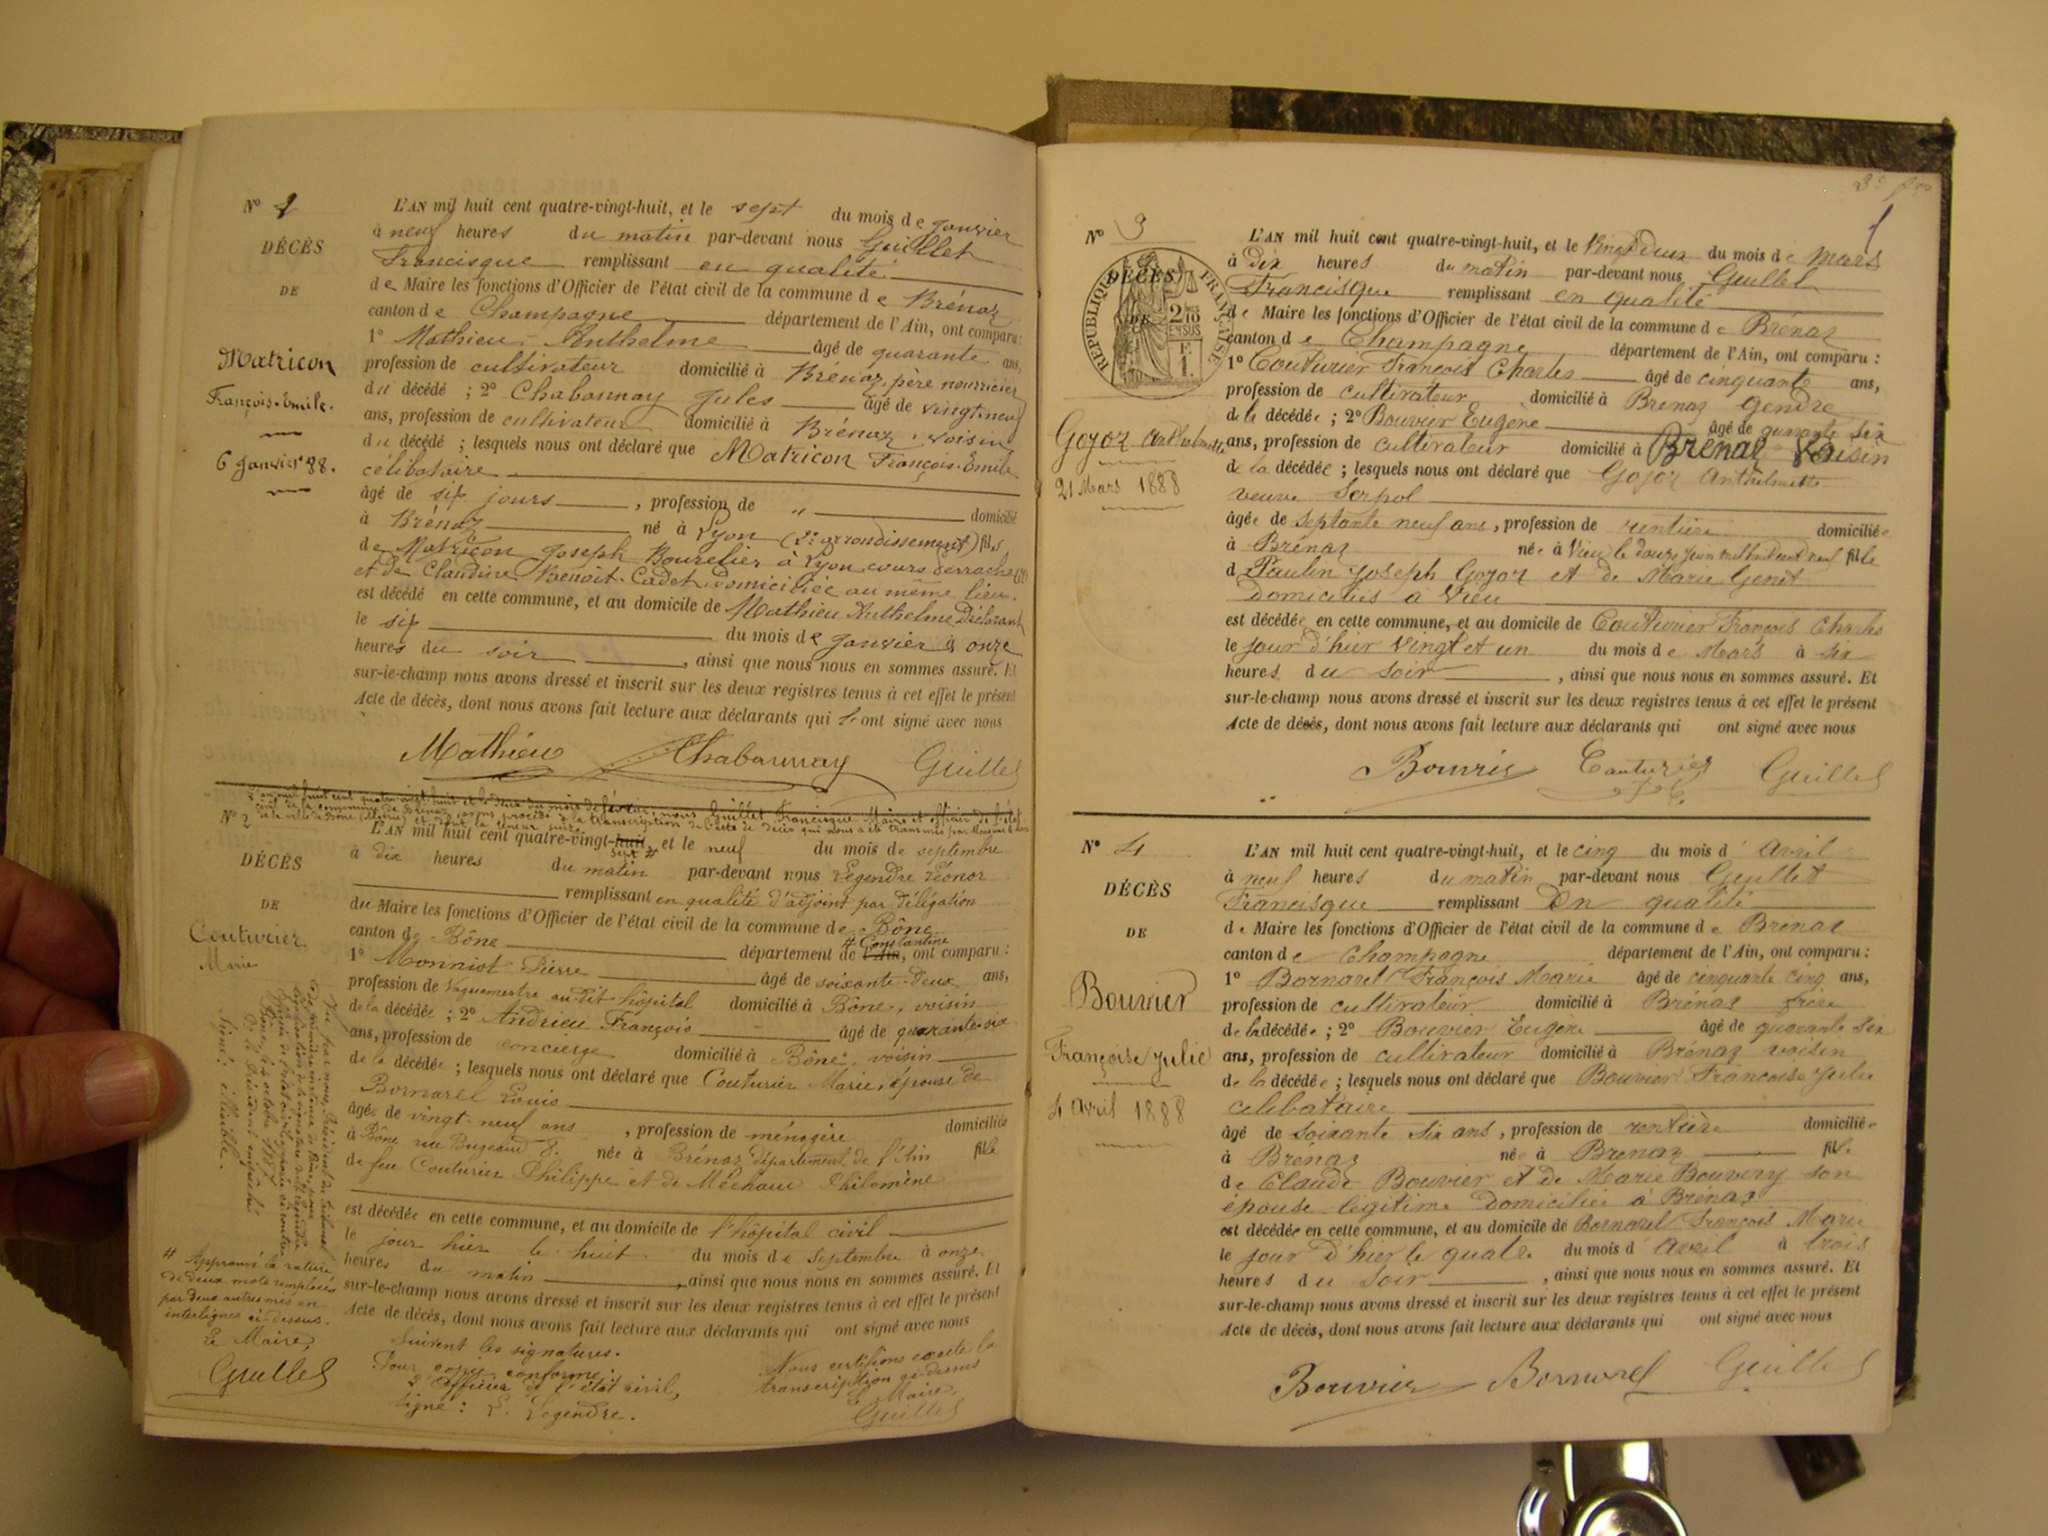 Nº 1
DÉCÈS
DE
Matricon
François-Emile.
6 Janvier 88.
L'AN mil huit cent quatre-vingt-huit, et le sept du mois de janvier
à neuf heures du matin par-devant nous Guillet
Francisque remplissant en qualité
de Maire les fonctions d'Officier de l'état civil de la commune de Brénaz
canton de Champagne département de l'Ain, ont comparu :
1º Mathieu Anthelme âgé de quarante ans,
profession de cultivateur domicilié à Brénaz, père nourricier
du décédé ; 2º Chabannay Jules âgé de vingt-neuf
ans, profession de cultivateur domicilié à Brénaz, voisin
du décédé ; lesquels nous ont déclaré que Matricon François-Emile
célibataire
âgé de six jours , profession de " domicilié
à Brénaz né à Lyon (2e arrondissement) fils
de Matricon Joseph Bourelier à Lyon, cours
et de Claudine Benoit-Cadet domiciliée au même lieu.
est décédé en cette commune, et au domicile de Mathieu Anthelme Déclarant
le six du mois de janvier à onze
heures du soir , ainsi que nous nous en sommes assuré. Et
sur-le-champ nous avons dressé et inscrit sur les deux registres tenus à cet effet le présent
Acte de décès, dont nous avons fait lecture aux déclarants qui ont signé avec nous
Mathieu Chabannay Guillet
L'an mil huit cent quatre-vingt-huit et le deux du mois de février, nous Guillet Francisque Maire et officier de l'état
civil de la commune de Brénaz, avons procédé à la transcription de l'acte de décès qui nous a été transmis par
de la ville de Bône et dont la teneur suit:
Nº 2
DÉCÈS
DE
Couturier
Marie
L'AN mil huit cent quatre-vingt-huit sept #, et le neuf du mois de septembre
à dix heures du matin par-devant nous Legendre Léonor
remplissant en qualité d'adjoint par délégation
du Maire les fonctions d'Officier de l'état civil de la commune de Bône
canton de Bône département de l'Ain # Constantine, ont comparu :
1º Monniot Pierre âgé de soixante-deux ans,
profession de Vaguemestre au dit hôpital domicilié à Bône, voisin
de la décédée ; 2º Andrieu François âgé de quarante-six
ans, profession de concierge domicilié à Bône, voisin
de la décédée ; lesquels nous ont déclaré que Couturier Marie, épouse de
Bornarel Louis
âgée de vingt-neuf ans , profession de ménagère domiciliée
à Bône rue Bugeaud 8. née à Brénaz département de l'Ain fille
de feu Couturier Philippe et de Méchaud Philomène
est décédée en cette commune, et au domicile de l'hôpital civil
le jour hier le huit du mois de Septembre à onze
heures du matin , ainsi que nous nous en sommes assuré. Et
sur-le-champ nous avons dressé et inscrit sur les deux registres tenus à cet effet le présent
Acte de décès, dont nous avons fait lecture aux déclarants qui ont signé avec nous
Suivent les signatures.
Pour copie conforme:
L'officier de l'état civil,
Signé: L. Legendre.
Nous certifions exacte la
transcription ci-dessus
Le Maire,
Guillet
Vu par nous, Président du tribunal
de première instance de Bône, pour
légalisation de la signature de Mr Legendre
officier de l'état civil, apposée ci-contre
Bône, le octobre 1887.
P. le Président empêché
Signé:
# Approuvé la rature
de deux mots remplacés
par deux autres mis en
interlignes ci-dessus.
Le Maire,
Guillet
1
Nº 3
DÉCÈS
DE
RÉPUBLIQUE FRANÇAISE
2/10
EN SUS
1 F.
Gojoz Anthelmette
21 Mars 1888
L'AN mil huit cent quatre-vingt-huit, et le vingt deux du mois de mars
à dix heures du matin par-devant nous Guillet
Francisque remplissant en qualité
de Maire les fonctions d'Officier de l'état civil de la commune de Brénaz
canton de Champagne département de l'Ain, ont comparu :
1º Couturier François Charles âgé de cinquante ans,
profession de cultivateur domicilié à Brenaz gendre
de la décédée ; 2º Bouvier Eugène âgé de quarante six
ans, profession de cultivateur domicilié à Brénaz Voisin
de la décédée ; lesquels nous ont déclaré que Gojoz Anthelmette
veuve Serpol
âgée de septante neuf ans, profession de rentière domiciliée
à Brénaz née à Vieu le douze juin mil huit cent neuf fille
d Paulin Joseph Gojoz et de Marie Genet
domiciliés à Vieu
est décédée en cette commune, et au domicile de Couturier François Charles
le jour d'hier vingt et un du mois de Mars à six
heures du soir , ainsi que nous nous en sommes assuré. Et
sur-le-champ nous avons dressé et inscrit sur les deux registres tenus à cet effet le présent
Acte de décès, dont nous avons fait lecture aux déclarants qui ont signé avec nous
Bouvier Couturier Guillet
Nº 4
DÉCÈS
DE
Bouvier
Françoise Julie
4 Avril 1888
L'AN mil huit cent quatre-vingt-huit, et le cinq du mois d'Avril
à neuf heures du matin par-devant nous Guillet
Francisque remplissant En qualité
de Maire les fonctions d'Officier de l'état civil de la commune de Brénaz
canton de Champagne département de l'Ain, ont comparu :
1º Bornarel François Marie âgé de cinquante cinq ans,
profession de cultivateur domicilié à Brénaz frère
de la décédée ; 2º Bouvier Eugène âgé de quarante six
ans, profession de cultivateur domicilié à Brénaz voisin
de la décédée ; lesquels nous ont déclaré que Bouvier Françoise Julie
célibataire
âgé de soixante six ans, profession de rentière domiciliée
à Brénaz née à Brenaz fille
de Claude Bouvier et de Marie Bouvery son
épouse légitime domiciliés à Brénaz
est décédée en cette commune, et au domicile de Bornarel François Marie
le jour d'hier le quatre du mois d'Avril à trois
heures du soir , ainsi que nous nous en sommes assuré. Et
sur-le-champ nous avons dressé et inscrit sur les deux registres tenus à cet effet le présent
Acte de décès, dont nous avons fait lecture aux déclarants qui ont signé avec nous
Bouvier Bornarel Guillet